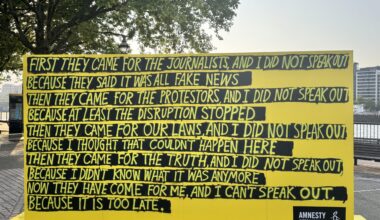 FIRST THEY CAME FOR THE JOURNALISTS, AND I DID NOT SPEAK OUT
BECAUSE THEY SAID IT WAS ALL FAKE NEWS
THEN THEY CAME FOR THE PROTESTORS, AND I DID NOT SPEAK OUT
BECAUSE AT LEAST THE DISRUPTION STOPPED
THEN THEY CAME FOR OUR LAWS AND I DID NOT SPEAK OUT
BECAUSE I THOUGHT THAT COULDN'T HAPPEN HERE
THEN THEY CAME FOR THE TRUTH, AND I DID NOT SPEAK OUT,
BECAUSE I DIDN'T KNOW WHAT IT WAS ANYMORE.
NOW THEY HAVE COME FOR ME, AND I CAN'T SPEAK OUT,
BECAUSE IT IS TOO LATE.
AMNESTY